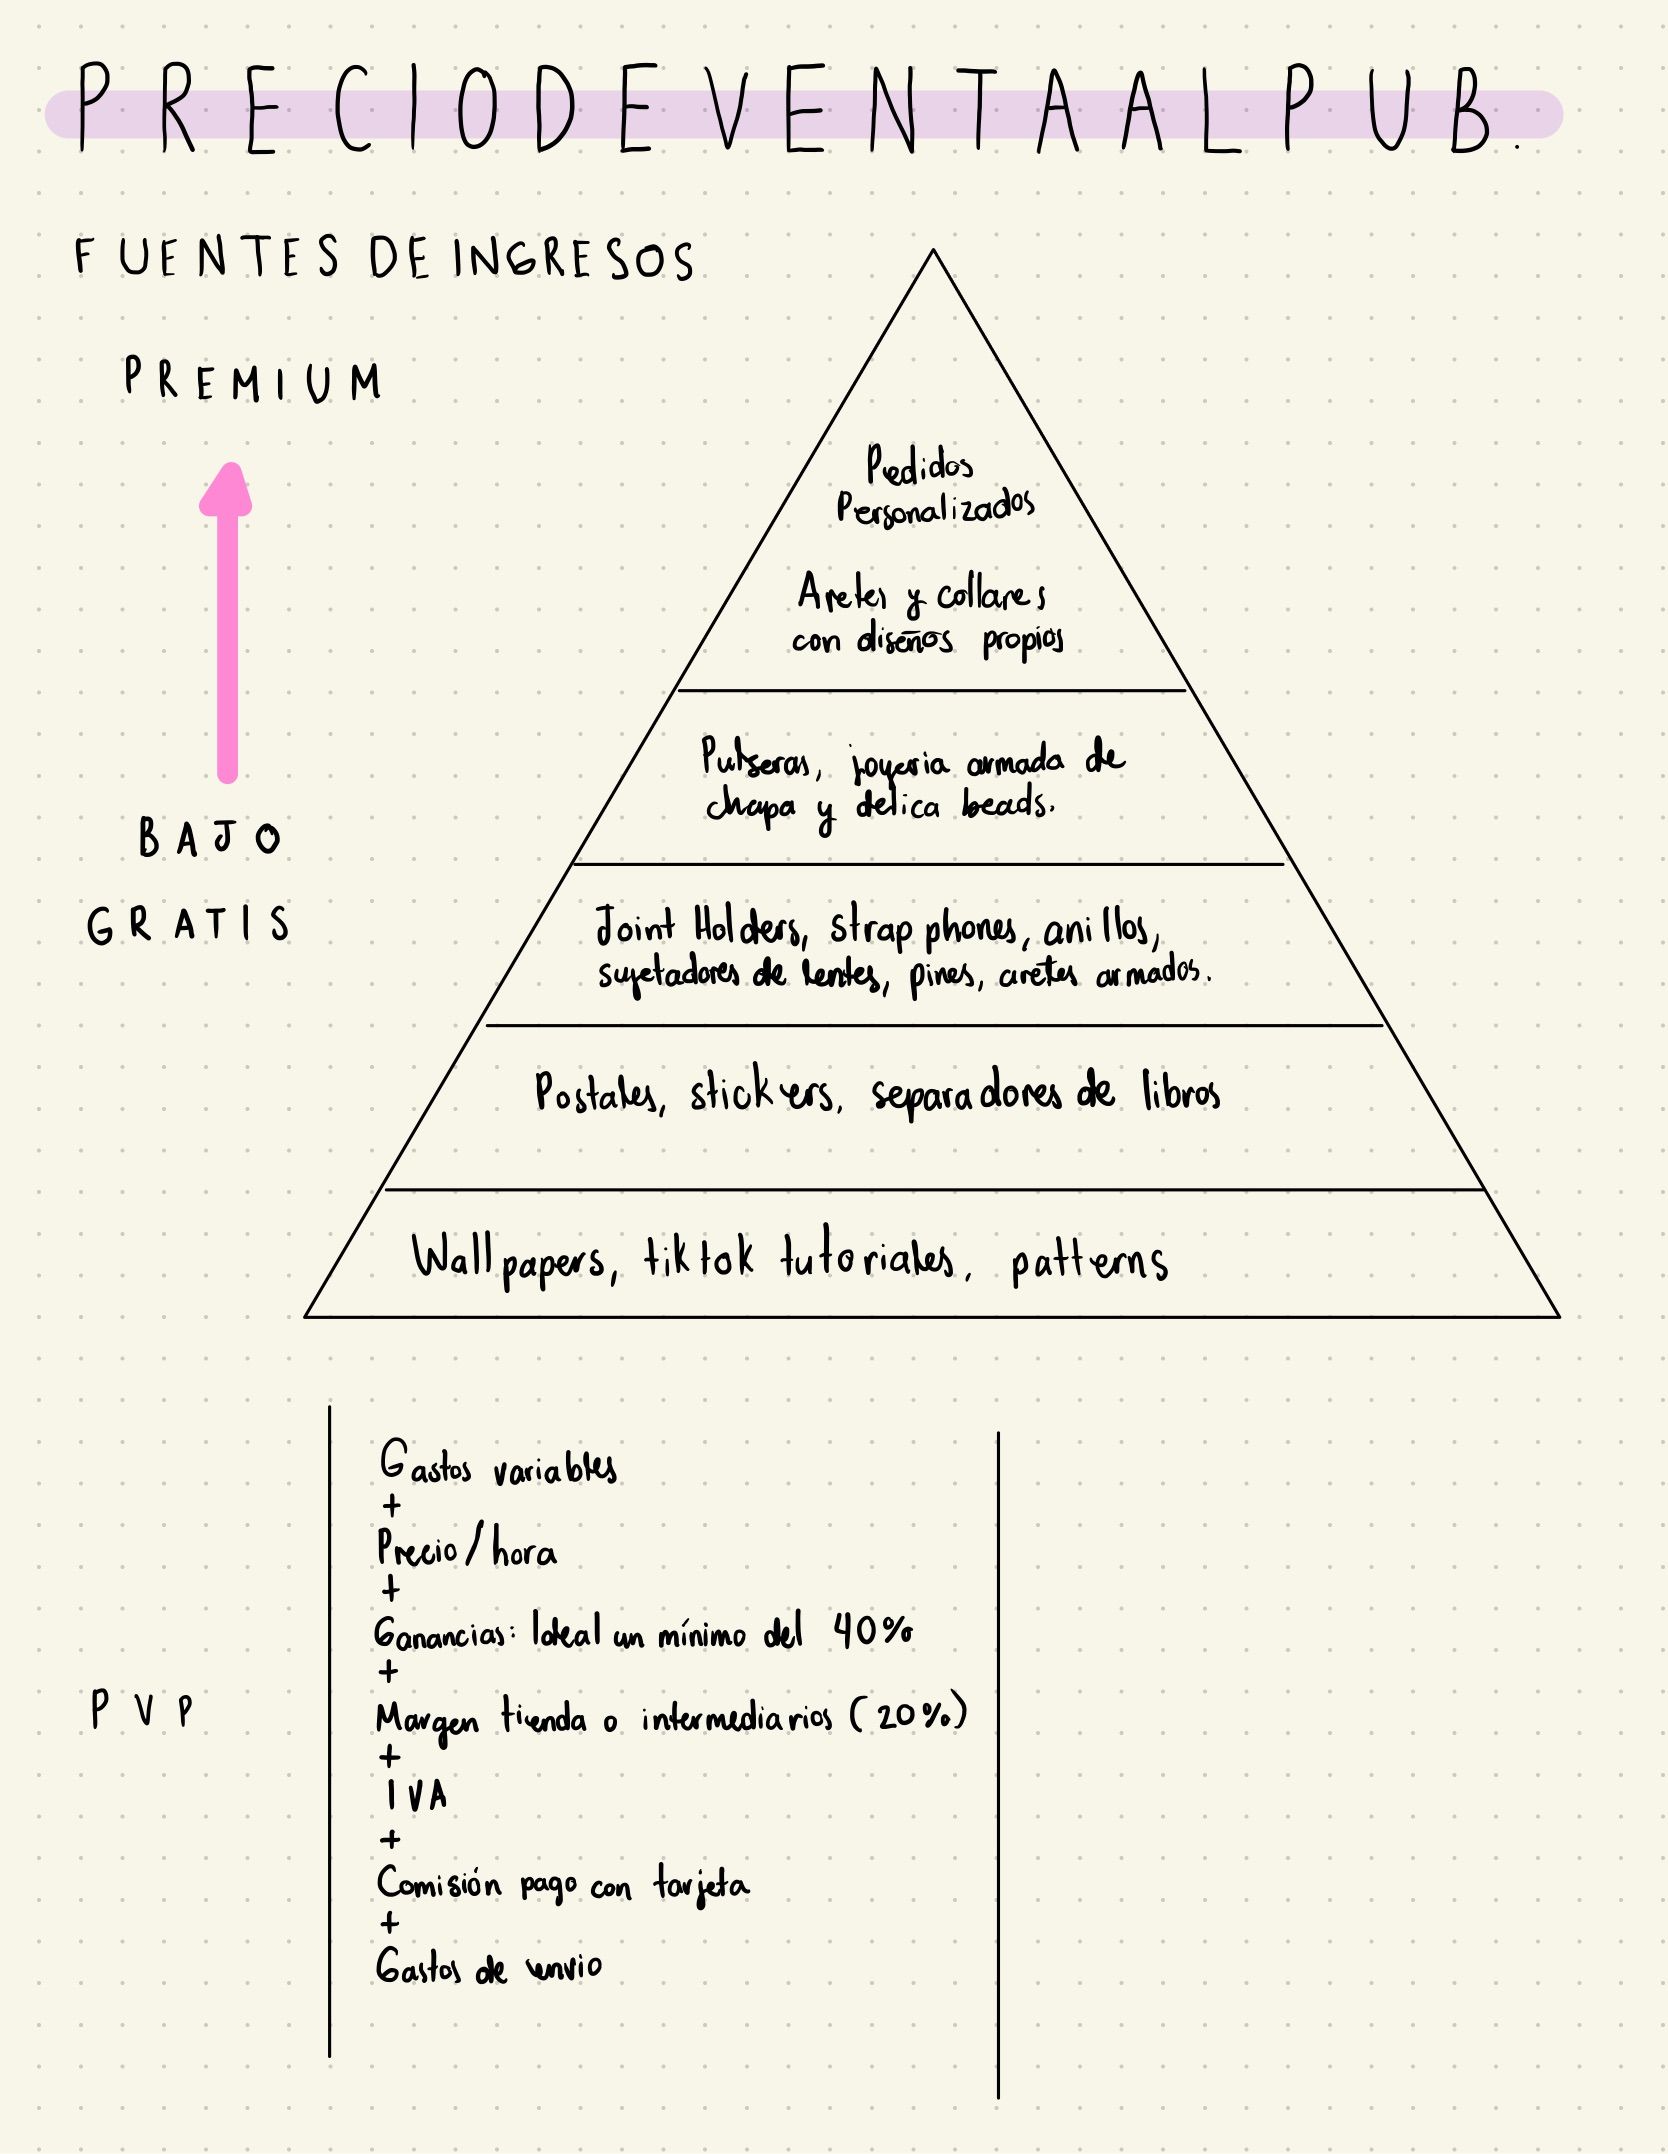 PRECIO DE VENTA AL PUB.
FUENTES DE INGRESOS
PREMIUM
BAJO
GRATIS
Pedidos
Personalizados
Aretes y collares
con diseños propios
Pulseras, joyeria armada de
chapa y delica beads.
Joint Holders, strap phones, anillos,
sujetadores de lentes, pines, aretes armados.
Postales, stickers, separadores de libros
Wallpapers, tiktok tutoriales, patterns
PVP
Gastos variables
+
Precio/hora
+
Ganancias: Ideal un mínimo del 40%
+
Margen tienda o intermediarios (20%)
+
IVA
+
Comisión pago con tarjeta
+
Gastos de envio